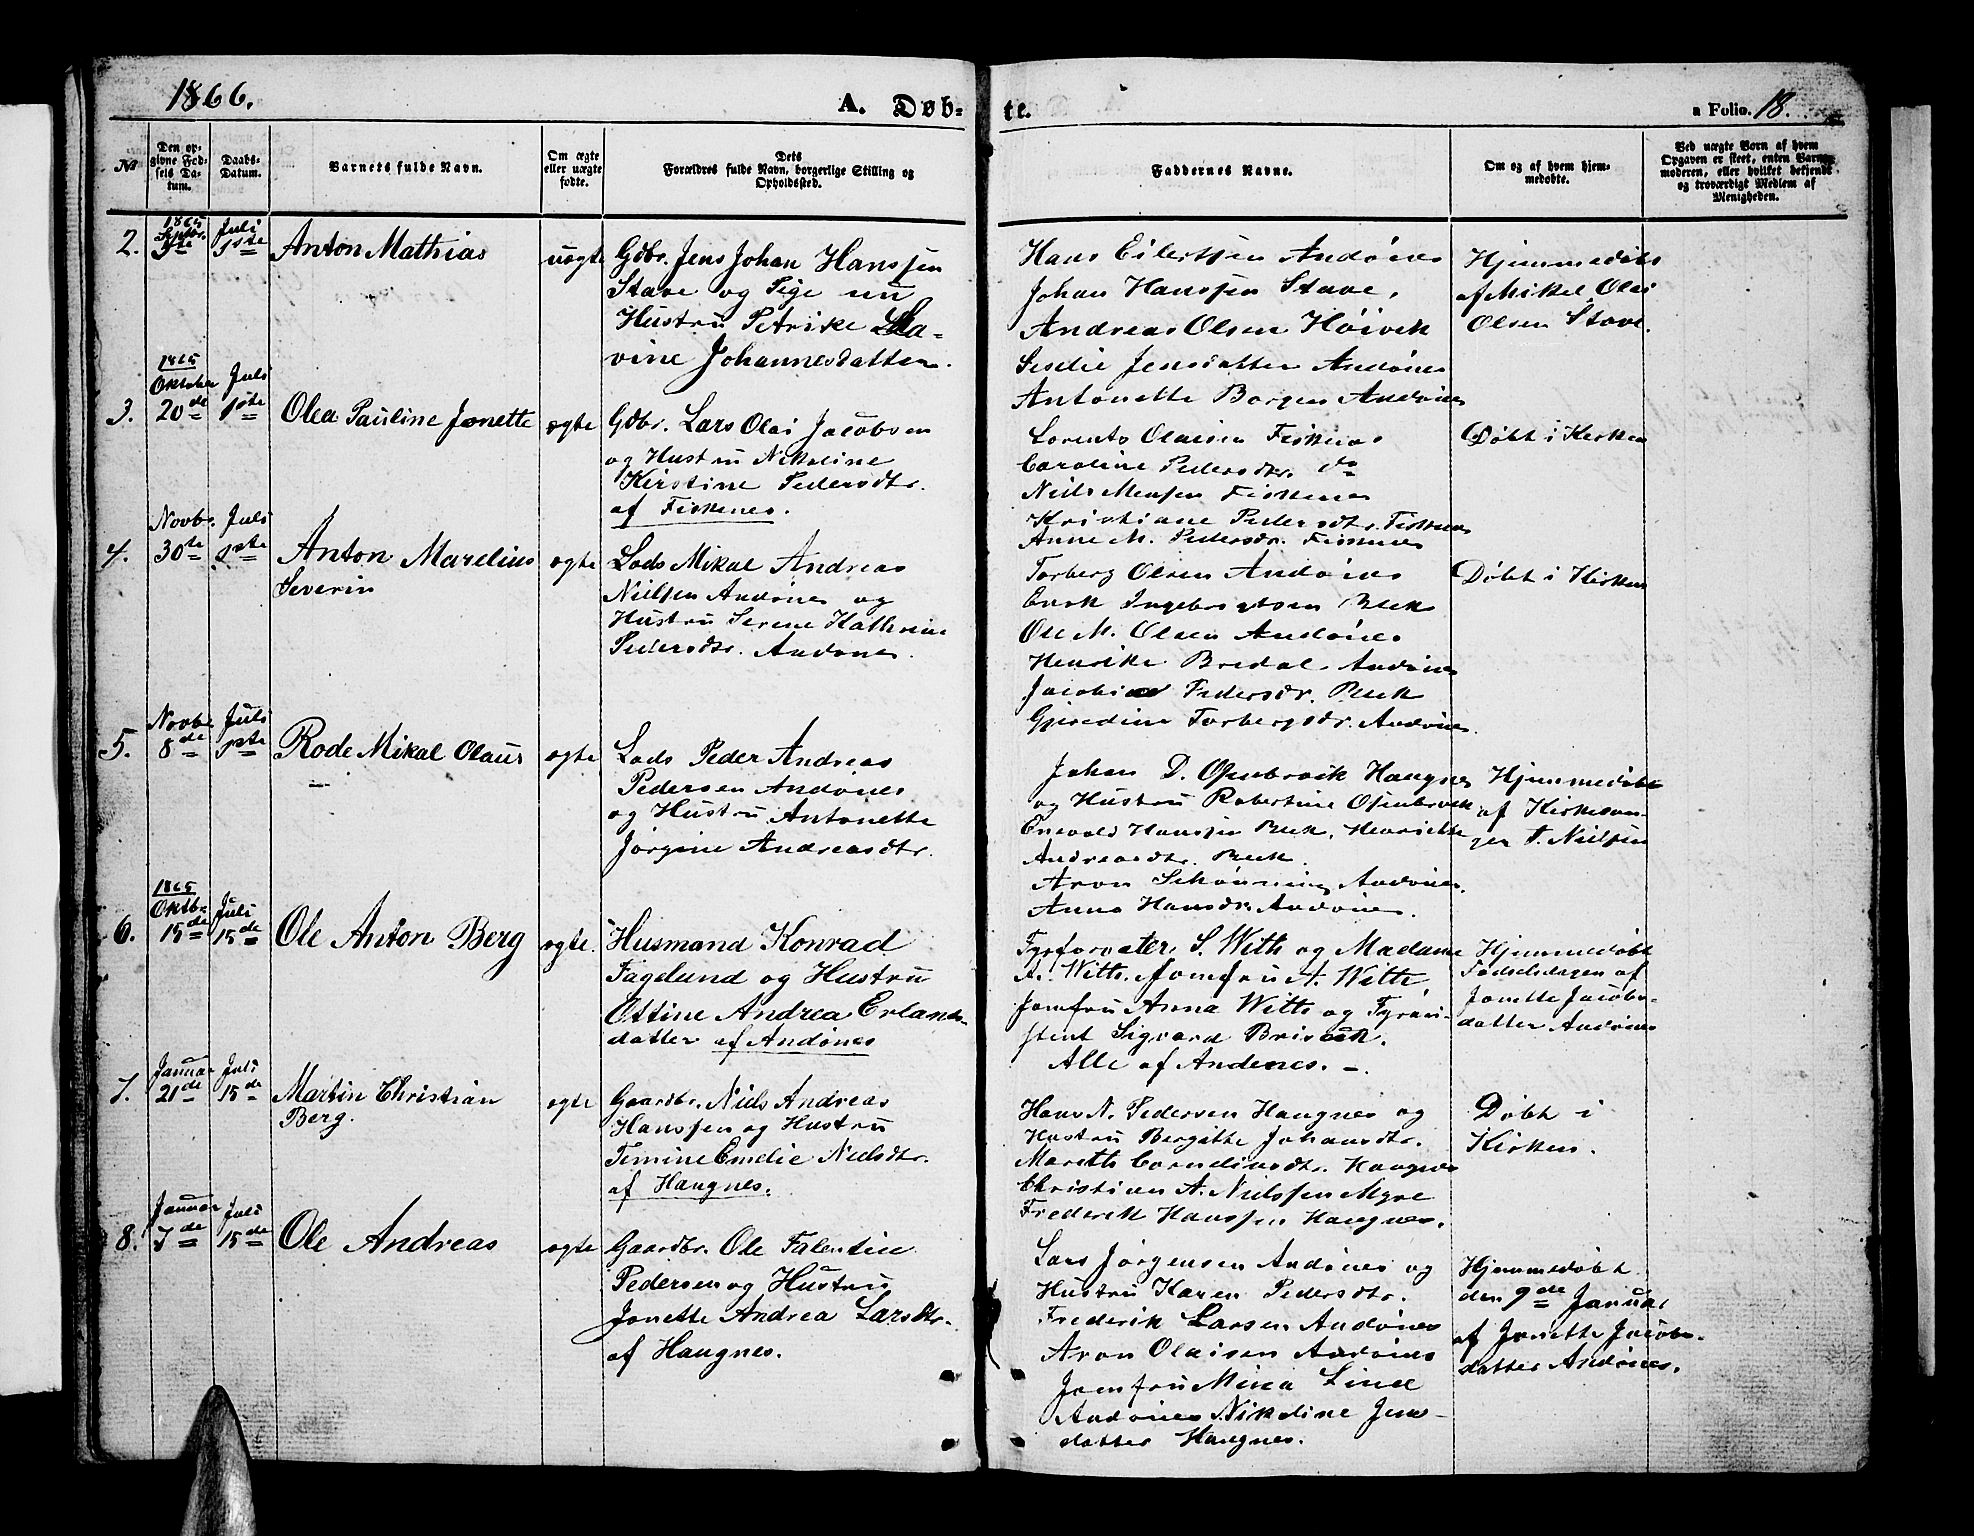 1866.
A. Døb-
te.
a Folio. 18.
№
Den op-
givne Fød-
sels Da-
tum.
Daabs-
Datum.
Barnets fulde Navn.
Om ægte
eller uægte
fødte.
Dets
Forældres fulde Navn, borgerlige Stilling og
Opholdssted.
Faddernes Navne.
Om og af hvem hjem-
medøbte.
Ved uægte Børn af hvem
Opgaven er skeet, enten Barne-
moderen, eller hvilket bekjendt
og troværdigt Medlem af
Menigheden.
2.
1865
Septbr.
Juli
1ste
Anton Mathias
uægte
Gdbr. Jens Johan Hanssen
Stave og Pige nu
Hustru Petrike La-
vine Johannesdatter.
Hans Eilertsen Andønes
Johan Hanssen Stave,
Andreas Olsen Høivik
Jensdatter Andønes
Antonette Borgen Andønes
Hjemmedøbt
af Mikel Olai
Olsen Stave.
3.
1865
Oktober
20de
Juli
1ste
Olea Pauline Jonette
ægte
Gdbr. Lars Olai Jacobsen
og Hustru Nikoline
Kirstine Pedersdtr.
af Fiskenes.
Lorents Olaisen Fiskenes
Caroline Pedersdtr. do
Niels Mensen Fiskenes
Kristiane Pedersdtr. Fiskenes
Anne M. Pedersdr. Fiskenes
Døbt i Kirken
4.
Novbr.
30te
Juli
1ste
Anton Marelius
Severin
ægte
Lods Mikal Andreas
Nielsen Andønes og
Hustru Serene Kathrine
Pedersdtr. Andønes
Torberg Olsen Andønes
Enok Ingebrigtsen Bleik
Ole M. Olsen Andønes
Henrike Bredal Andønes
Jacobine Pedersdr. Bleik
Gjeredine Torbergsdr. Andønes
Døbt i Kirken
5.
Novbr
8de
Juli
1ste
Rode Mikal Olaus
ægte
Lods Peder Andreas
Pedersen Andønes
og Hustru Antonette
Jørgine Andreasdtr.
Johan D. Osenbroik Haugnes
og Hustru Robertine Osenbroik
Enevold Hanssen Bleik, Henriette
Andreasdtr. Bleik.
Aron Schønning Andønes.
Anna Hansdr. Andønes.
Hjemmedøbt
af Kirkesan-
ger T. Nielsen
6.
1865
Oktbr.
15de
Juli
15de
Ole Anton Berg
ægte.
Husmand Konrad
Fagelund og Hustru
Ottine Andrea Erlands-
datter af Andønes
Fyrforvalter S. With og Madame
A. Witth. Jomfru A. Witth
Jomfru Anna Witth og Fyrassi-
stent Sigvard
Alle af Andenes. -
Hjemmedøbt
Fødselsdagen af
Jonette Jacobs-
datter Andønes
7.
Januar
21de
Juli
15de
Martin Christian
Berg.
ægte
Gaardbr. Niels Andreas
Hanssen og Hustru
Temine Emelie Nielsdtr.
af Haugnes.
Hans N. Pedersen Haugnes og
Hustru Bergitte Johansdtr.
Mareth Corneliusdtr. Haugnes
Christian A. Nielssen Myre
Frederik Hanssen Haugnes.
Døbt i
Kirken.
8.
Januar
7de
Juli
15de
Ole Andreas
ægte
Gaardbr. Ole Falentin
Pedersen og Hustru
Jonette Andrea Larsdtr.
af Haugnes.
Lars Jørgensen Andønes og
Hustru Karen Pedersdtr.
Frederik Larsen Andønes
Aron Olaisen Andønes
Jomfru Mina Lind
Andønes Nikoline Jens-
datter Haugnes.
Hjemmedøbt
den 9de Januar
af Jonette Jacobs-
datter Andønes.